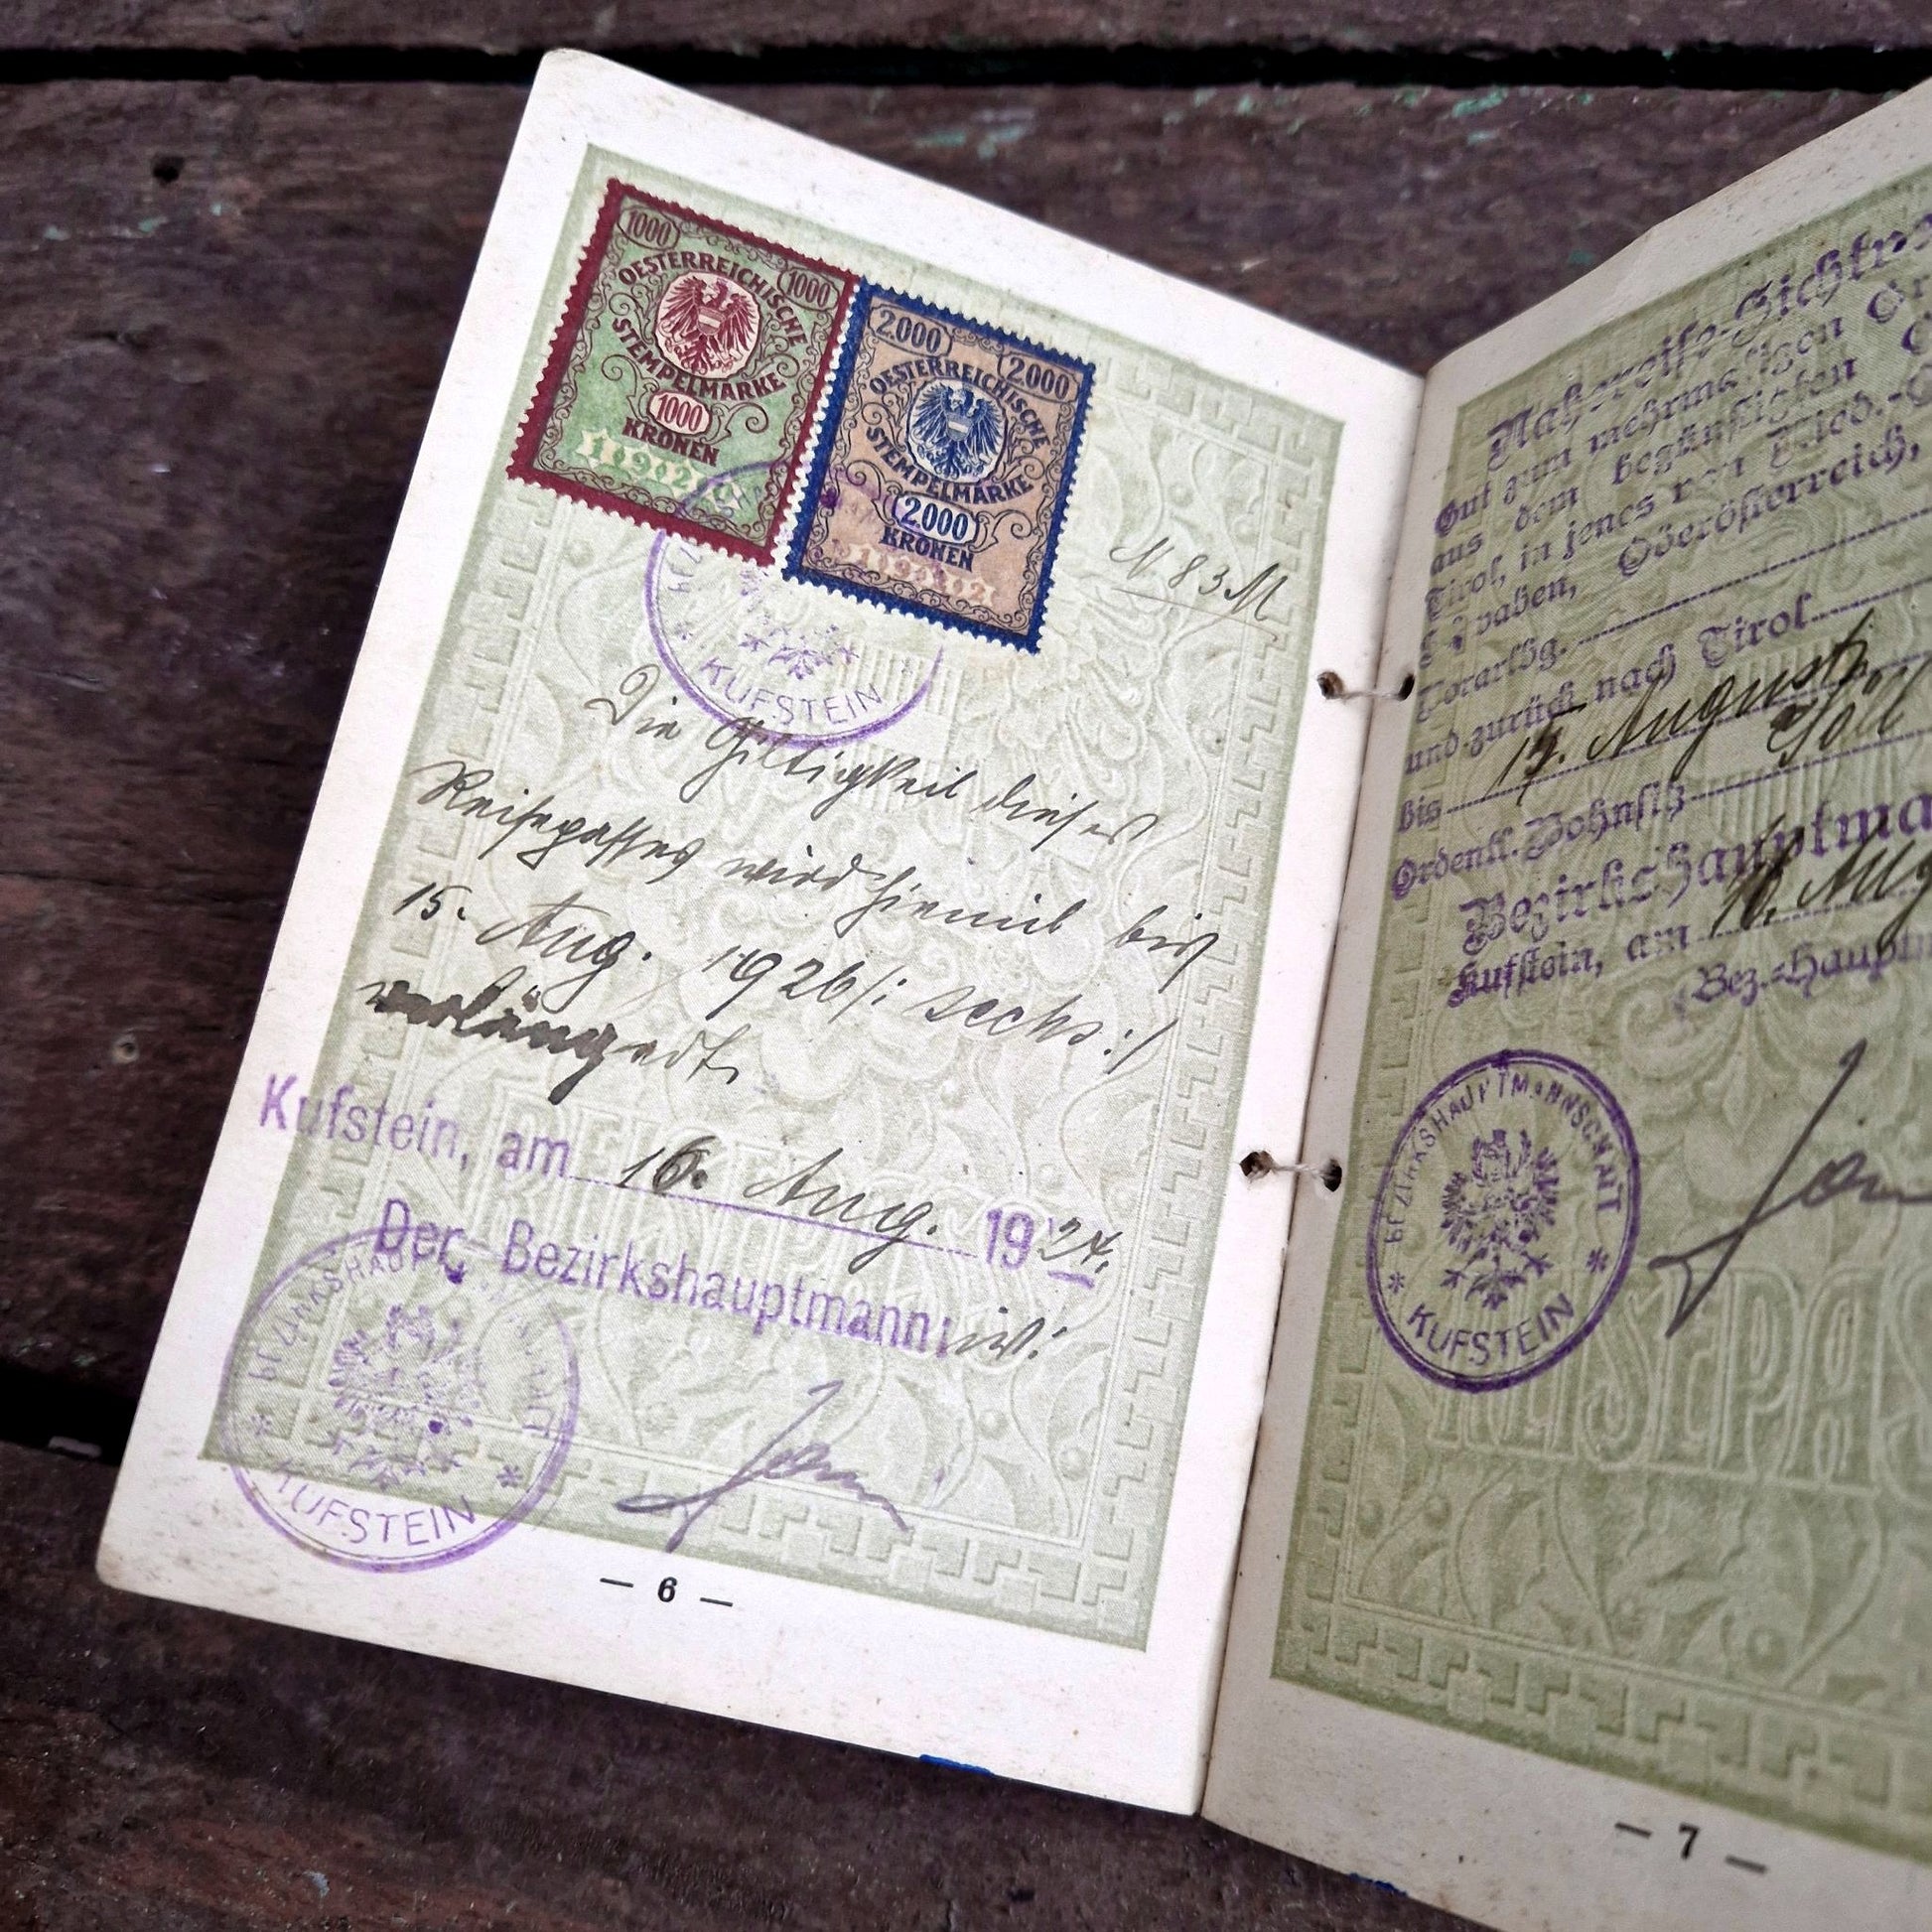 1000
1000
OESTERREICHISCHE
STEMPELMARKE
1000
KRONEN
2000
2000
OESTERREICHISCHE
STEMPELMARKE
2000
KRONEN
N 83 M
KUFSTEIN
Die Gültigkeit dieses
Reisepasses wird hiemit bis
15. Aug. 1926 /: sechs :/
verlängert.
Kufstein, am 16. Aug. 1924.
Der Bezirkshauptmann: i.V:
BEZIRKSHAUPT
KUFSTEIN
REISEPASS
— 6 —
Gut zum mehrmaligen
aus dem begünstigten
Tirol, in jenes von
Oberösterreich,
Vorarlbg.
und zurück nach Tirol
bis 15. August
Ordentl. Wohnsitz Söll
Bezirkshauptma
Kufstein, am 16. Aug
Bez.-Haupt
BEZIRKSHAUPTMANNSCHAFT
KUFSTEIN
REISEPAS
— 7 —